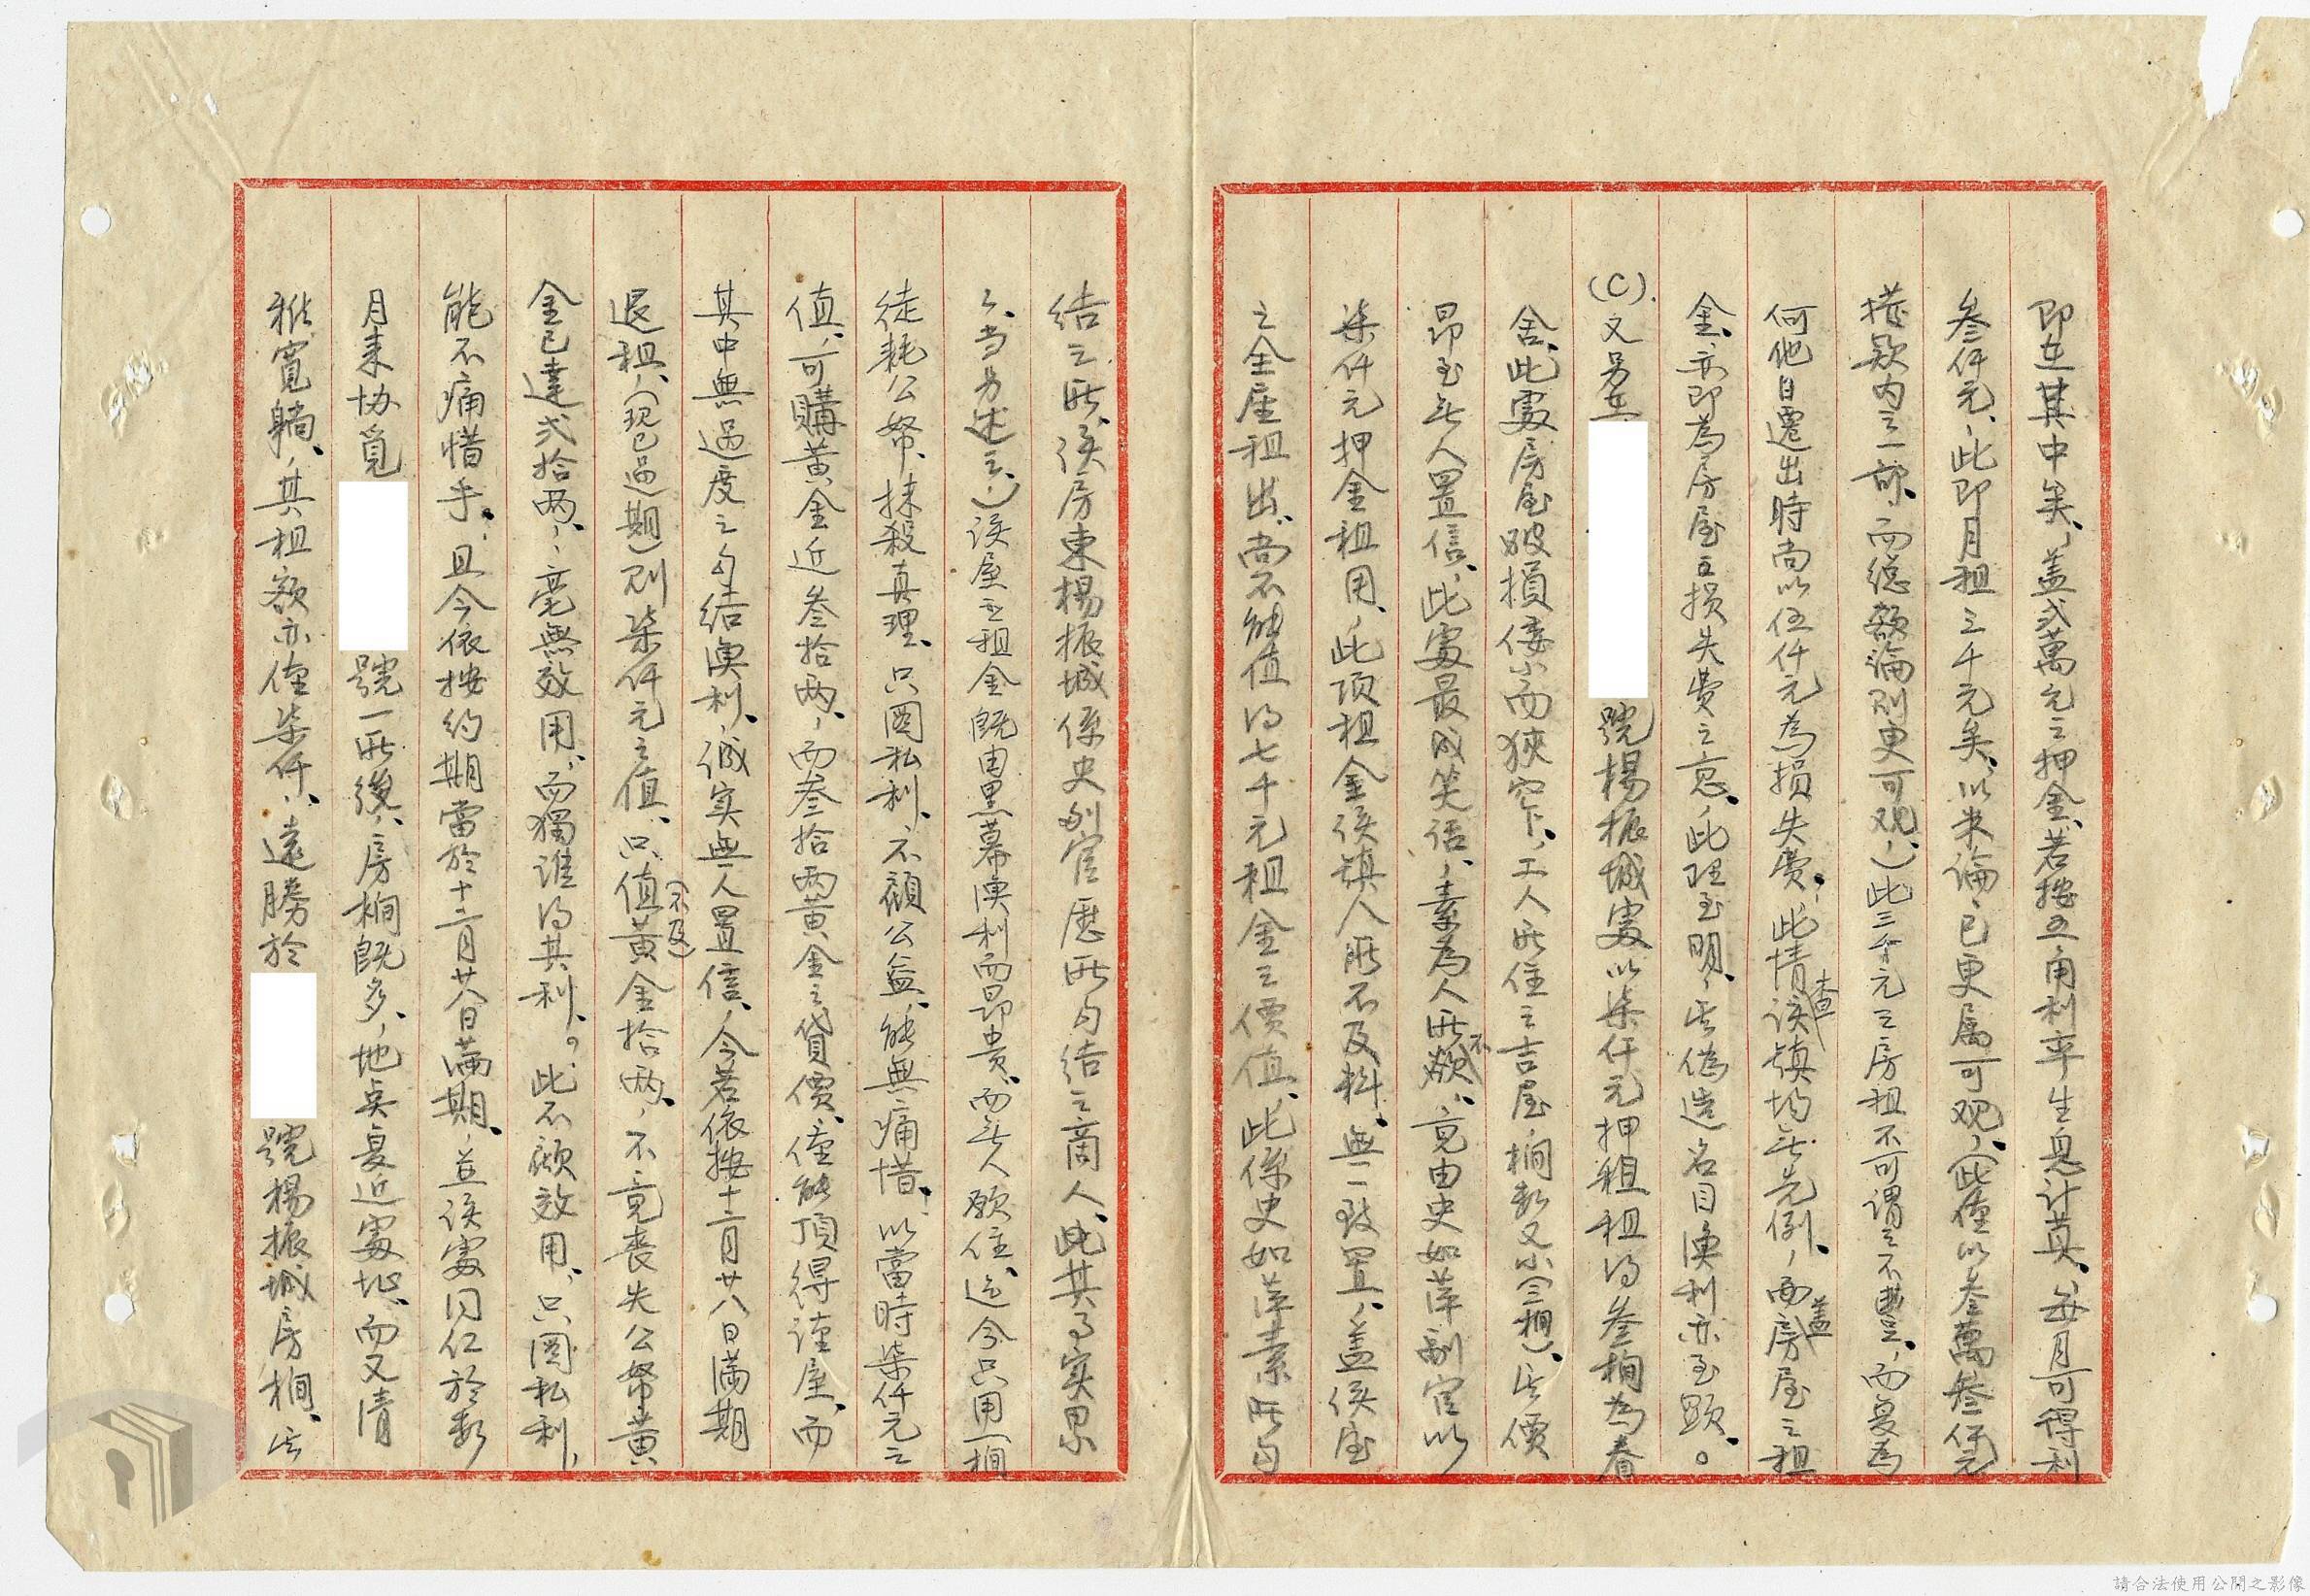 即在其中矣、蓋弍萬元之押金、若按五角利率生息計算、每月可得利
叁仟元、此即月租三千元矣、以米論、已更屬可观、(此僅以叁萬叁仟元
撥欵内之一部、而總額論則更可观、)此三千元之房租不可謂之不豊、而复為
何他日遷出時尚以伍仟元為損失費、此情查該鎮均無先例、蓋房屋之租
金、亦即為房屋損失費之意、此理至明、其偽造名目漁利亦至顕。
(C).又另在 號楊振城處以柒仟元押租租得叁榈為眷
舍、此處房屋破損倭小而狹窄下、工人所住之古屋、榈数又小(三榈)、其價
昂至無人置信、此處最成笑话、素為人所不歡、竟由史如萍副官以
柒仟元押金租用、此项租金侯鎮人所不及料、無一致置、蓋侯屋
之全屋租出、尚不能值得七千元租金之價值、此係史如萍素所勾
结之所、侯房東楊振城係史副官歷所勾结之商人、此其事实累
々、当另述之、)该屋之租金既由黑幕漁利而昂貴、而無人願住、迄今只用一榈
徒耗公帑、抹殺真理、只圖私利、不顧公益、能無痛惜、以當時柒仟元之
值、可購黄金近叁拾两、而叁拾两黄金之貸價、僅能頂得谨屋、而
其中無過度之勾结漁利、诚实無一人置信、今若依按十二月廿八日满期
退租、(现已過期)则柒仟元之值、只值(不及)黄金拾两、不竟丧失公帑黄
金已達弍拾两、毫無效用、而獨谁得其利、。此不顧效用、只圖私利、
能不痛惜乎、且今依按约期當於十二月廿八日满期、並侯處同仁於数
月来协覓 號一所後、房榈既多、地点复近處址、而又清
雅寬躺、其租额亦僅柒仟、遠勝於 號楊振城房榈、其